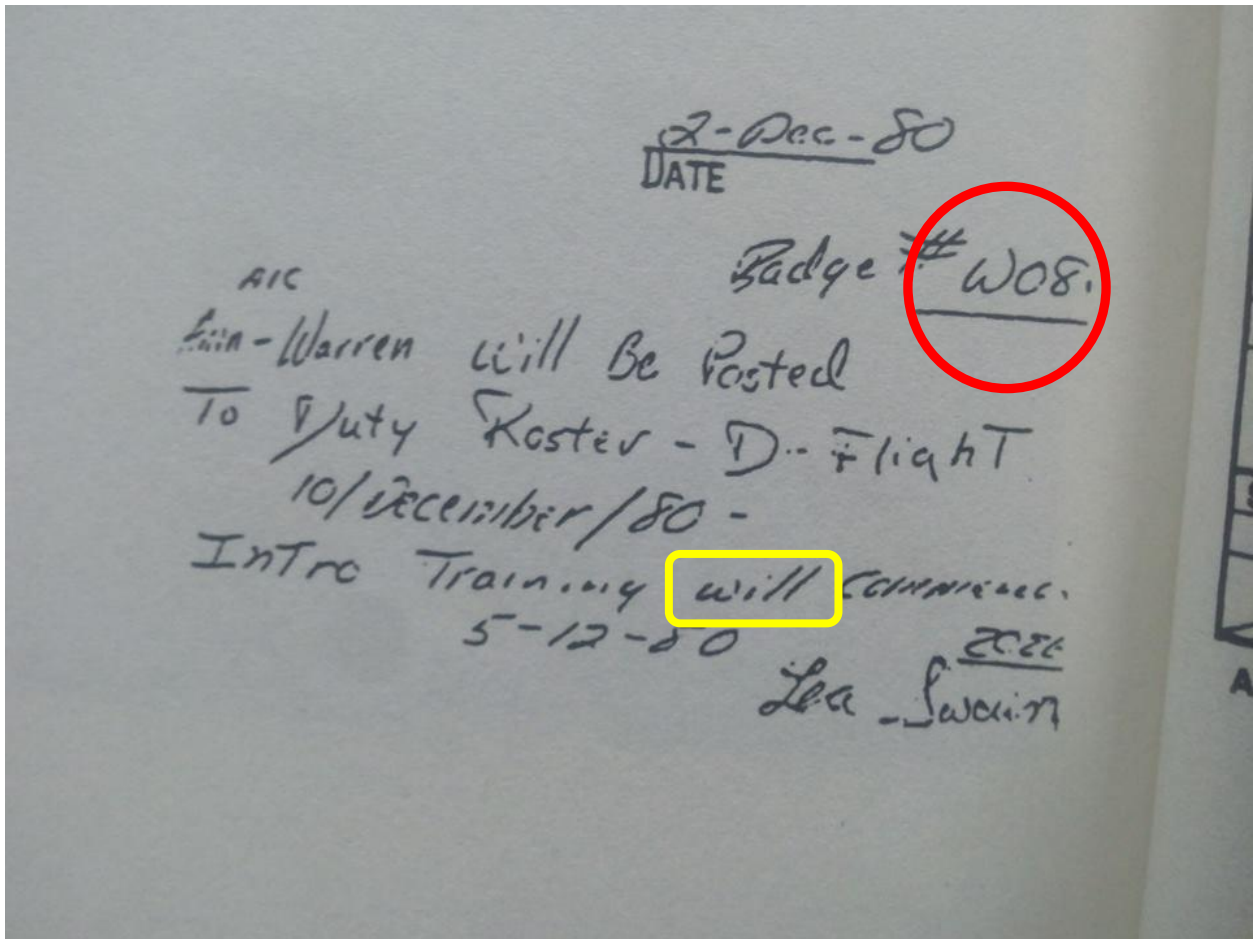 2-Dec-80
DATE
Badge # W08.
A1C
-Warren will Be Posted
To Duty Roster - D - Flight
10/December/80 -
Intro Training will Commence.
5-12-80
Lea Swain